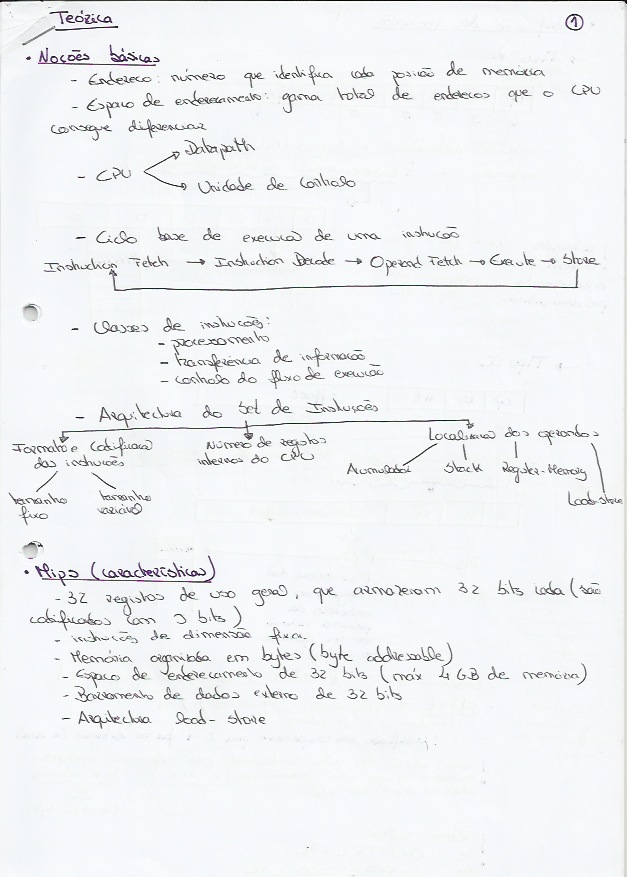 Teórica
1
• Noções básicas
- Endereço: número que identifica cada posição de memória
- Espaço de endereçamento: gama total de endereços que o CPU
consegue diferenciar
Datapath
- CPU
Unidade de controlo
- Ciclo base de execução de uma instrução
Instruction Fetch → Instruction Decode → Operand Fetch → Execute → Store
- Classes de instruções:
- processamento
- transferência de informação
- controlo do fluxo de execução
- Arquitectura do Set de Instruções
Formato e codificação das instruções
Número de registos internos do CPU
Localização dos operandos
Acumulador Stack Register-Memory
Load-store
tamanho fixo
tamanho variável
• Mips (características)
- 32 registos de uso geral, que armazenam 32 bits cada (são
codificados com 5 bits)
- instruções de dimensão fixa.
- Memória organizada em bytes (byte addressable)
- Espaço de endereçamento de 32 bits (máx 4 GB de memória)
- Barramento de dados externo de 32 bits
- Arquitectura load-store